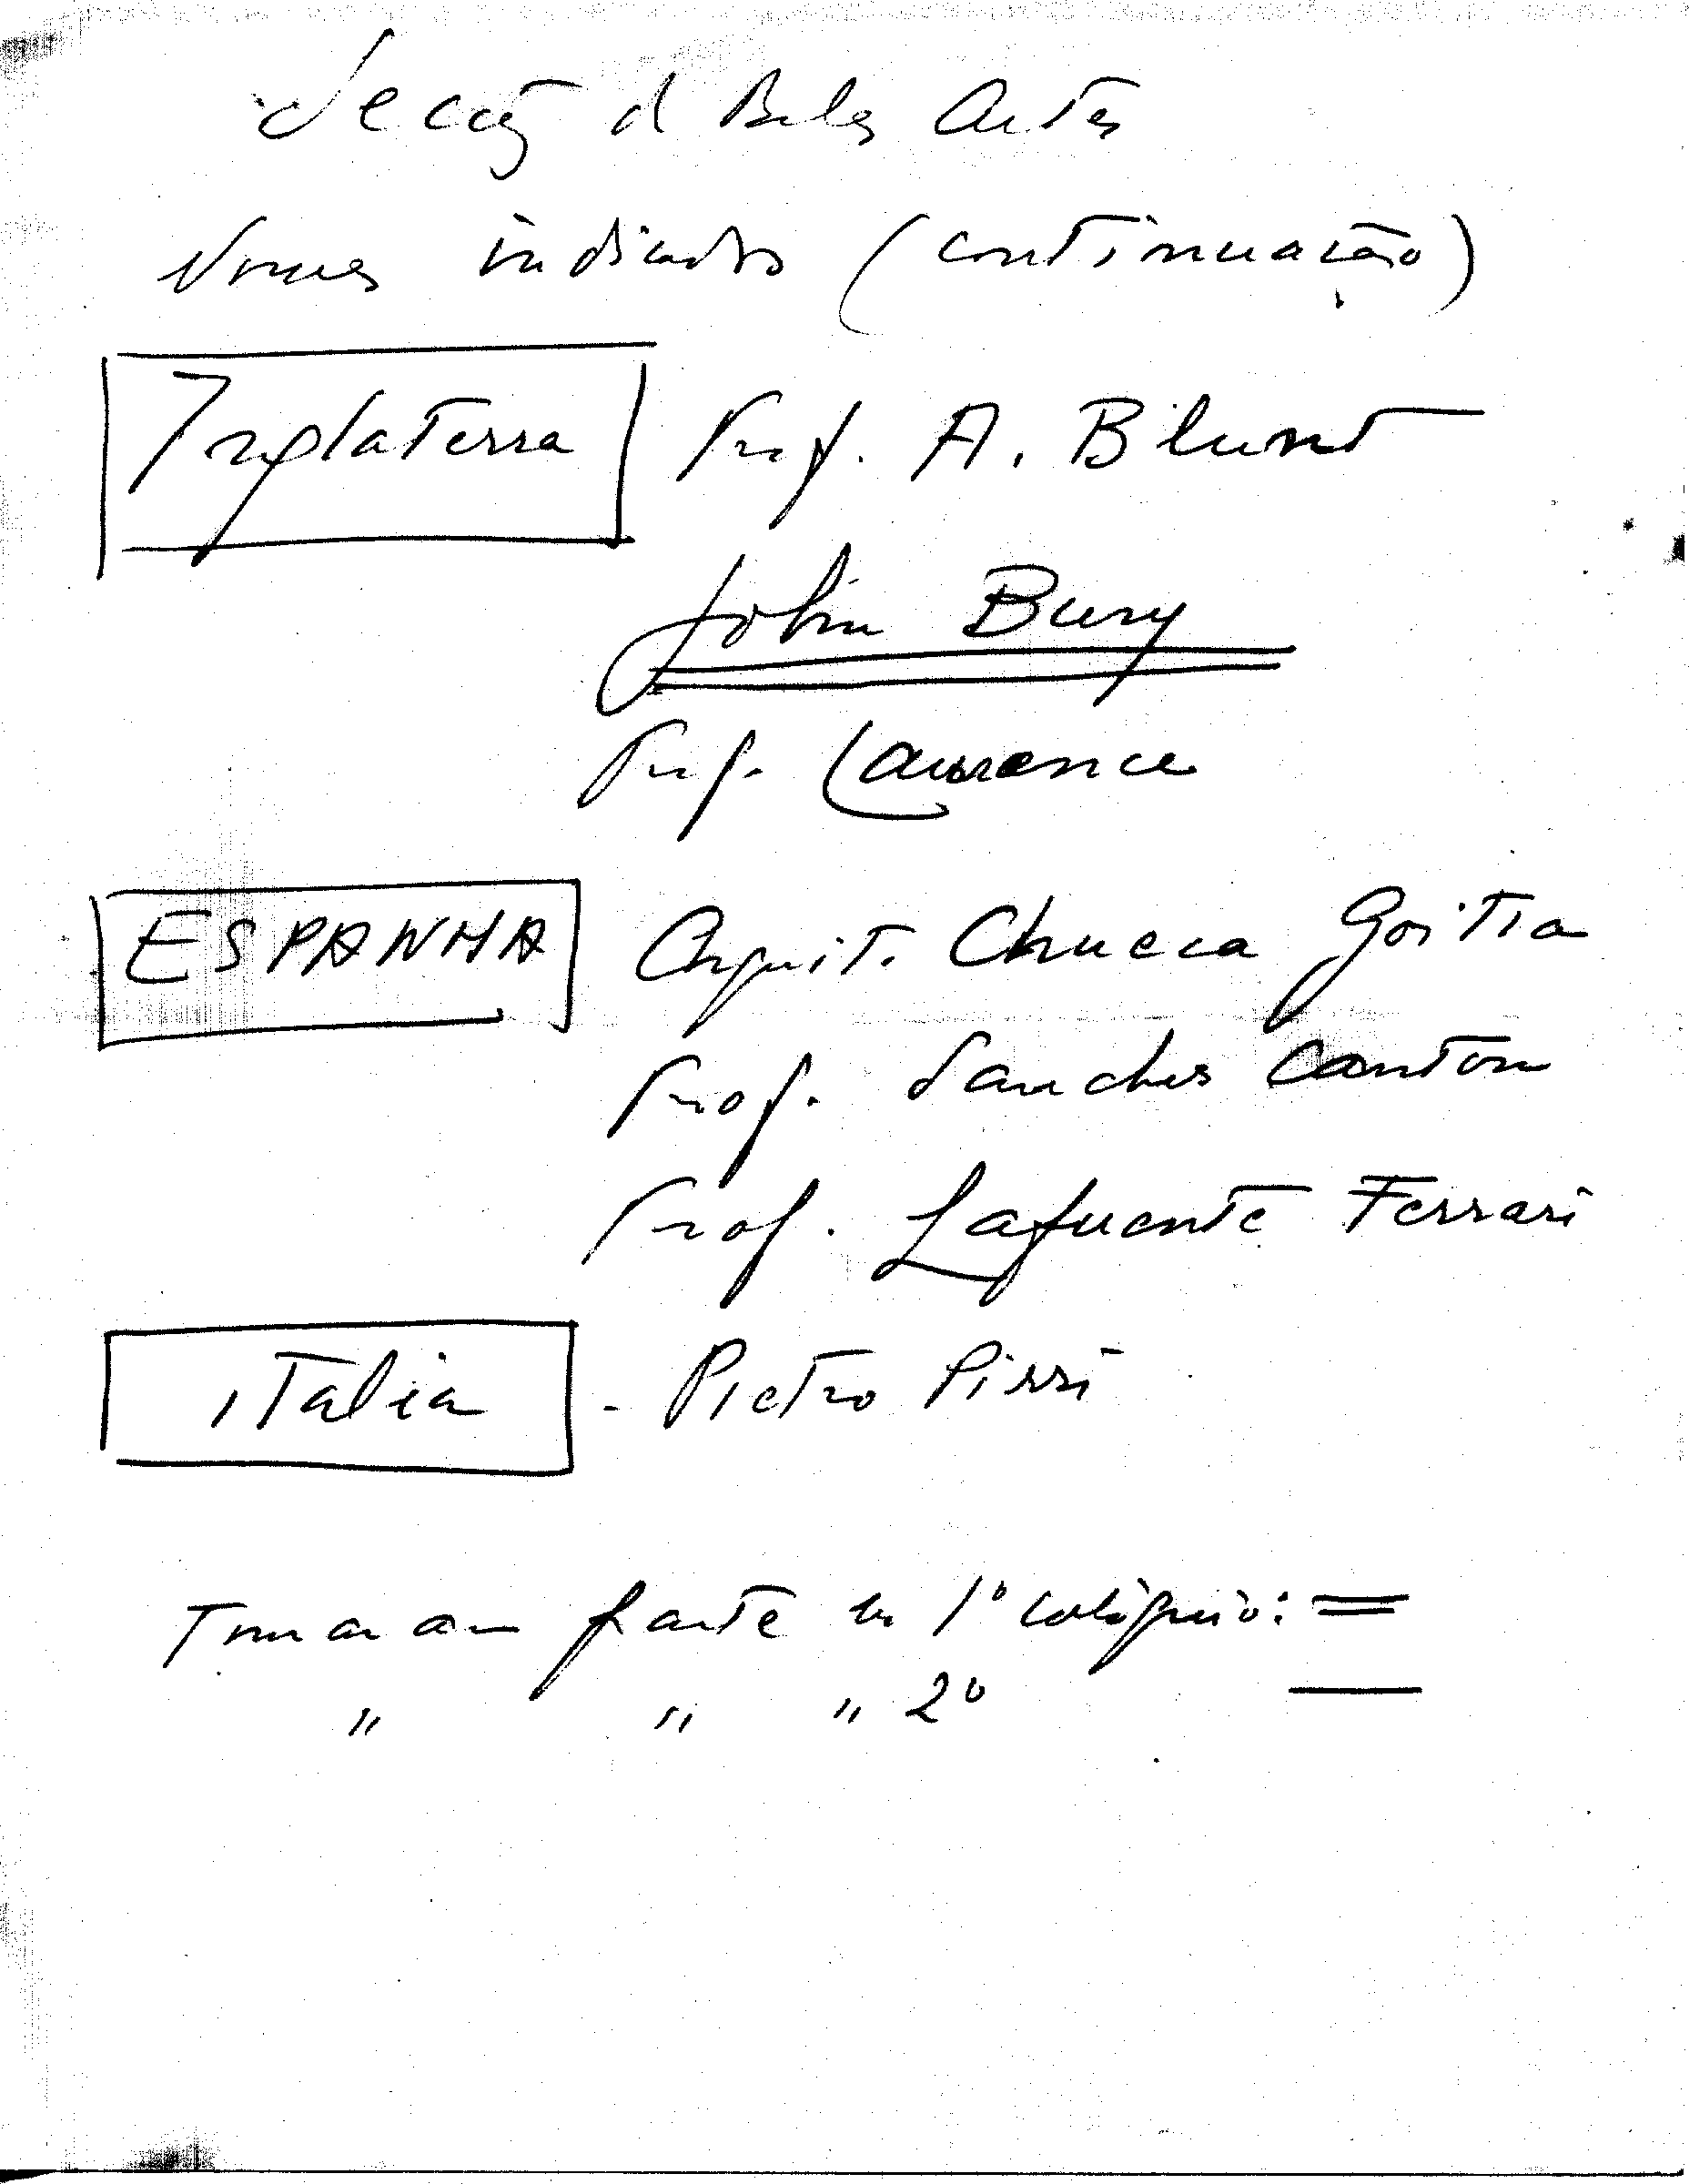 Secção d Belas Artes
Nomes indicados (continuação)
Inglaterra Prof. A. Blunt
John Bury
Prof. Lawrence
ESPANHA Arquit. Chueca Goitia
Prof. Sanches Canton
Prof. Lafuente Ferrari
italia - Pietro Pirri
Tomaram parte no 1º colóquio: =
" " " 2º —